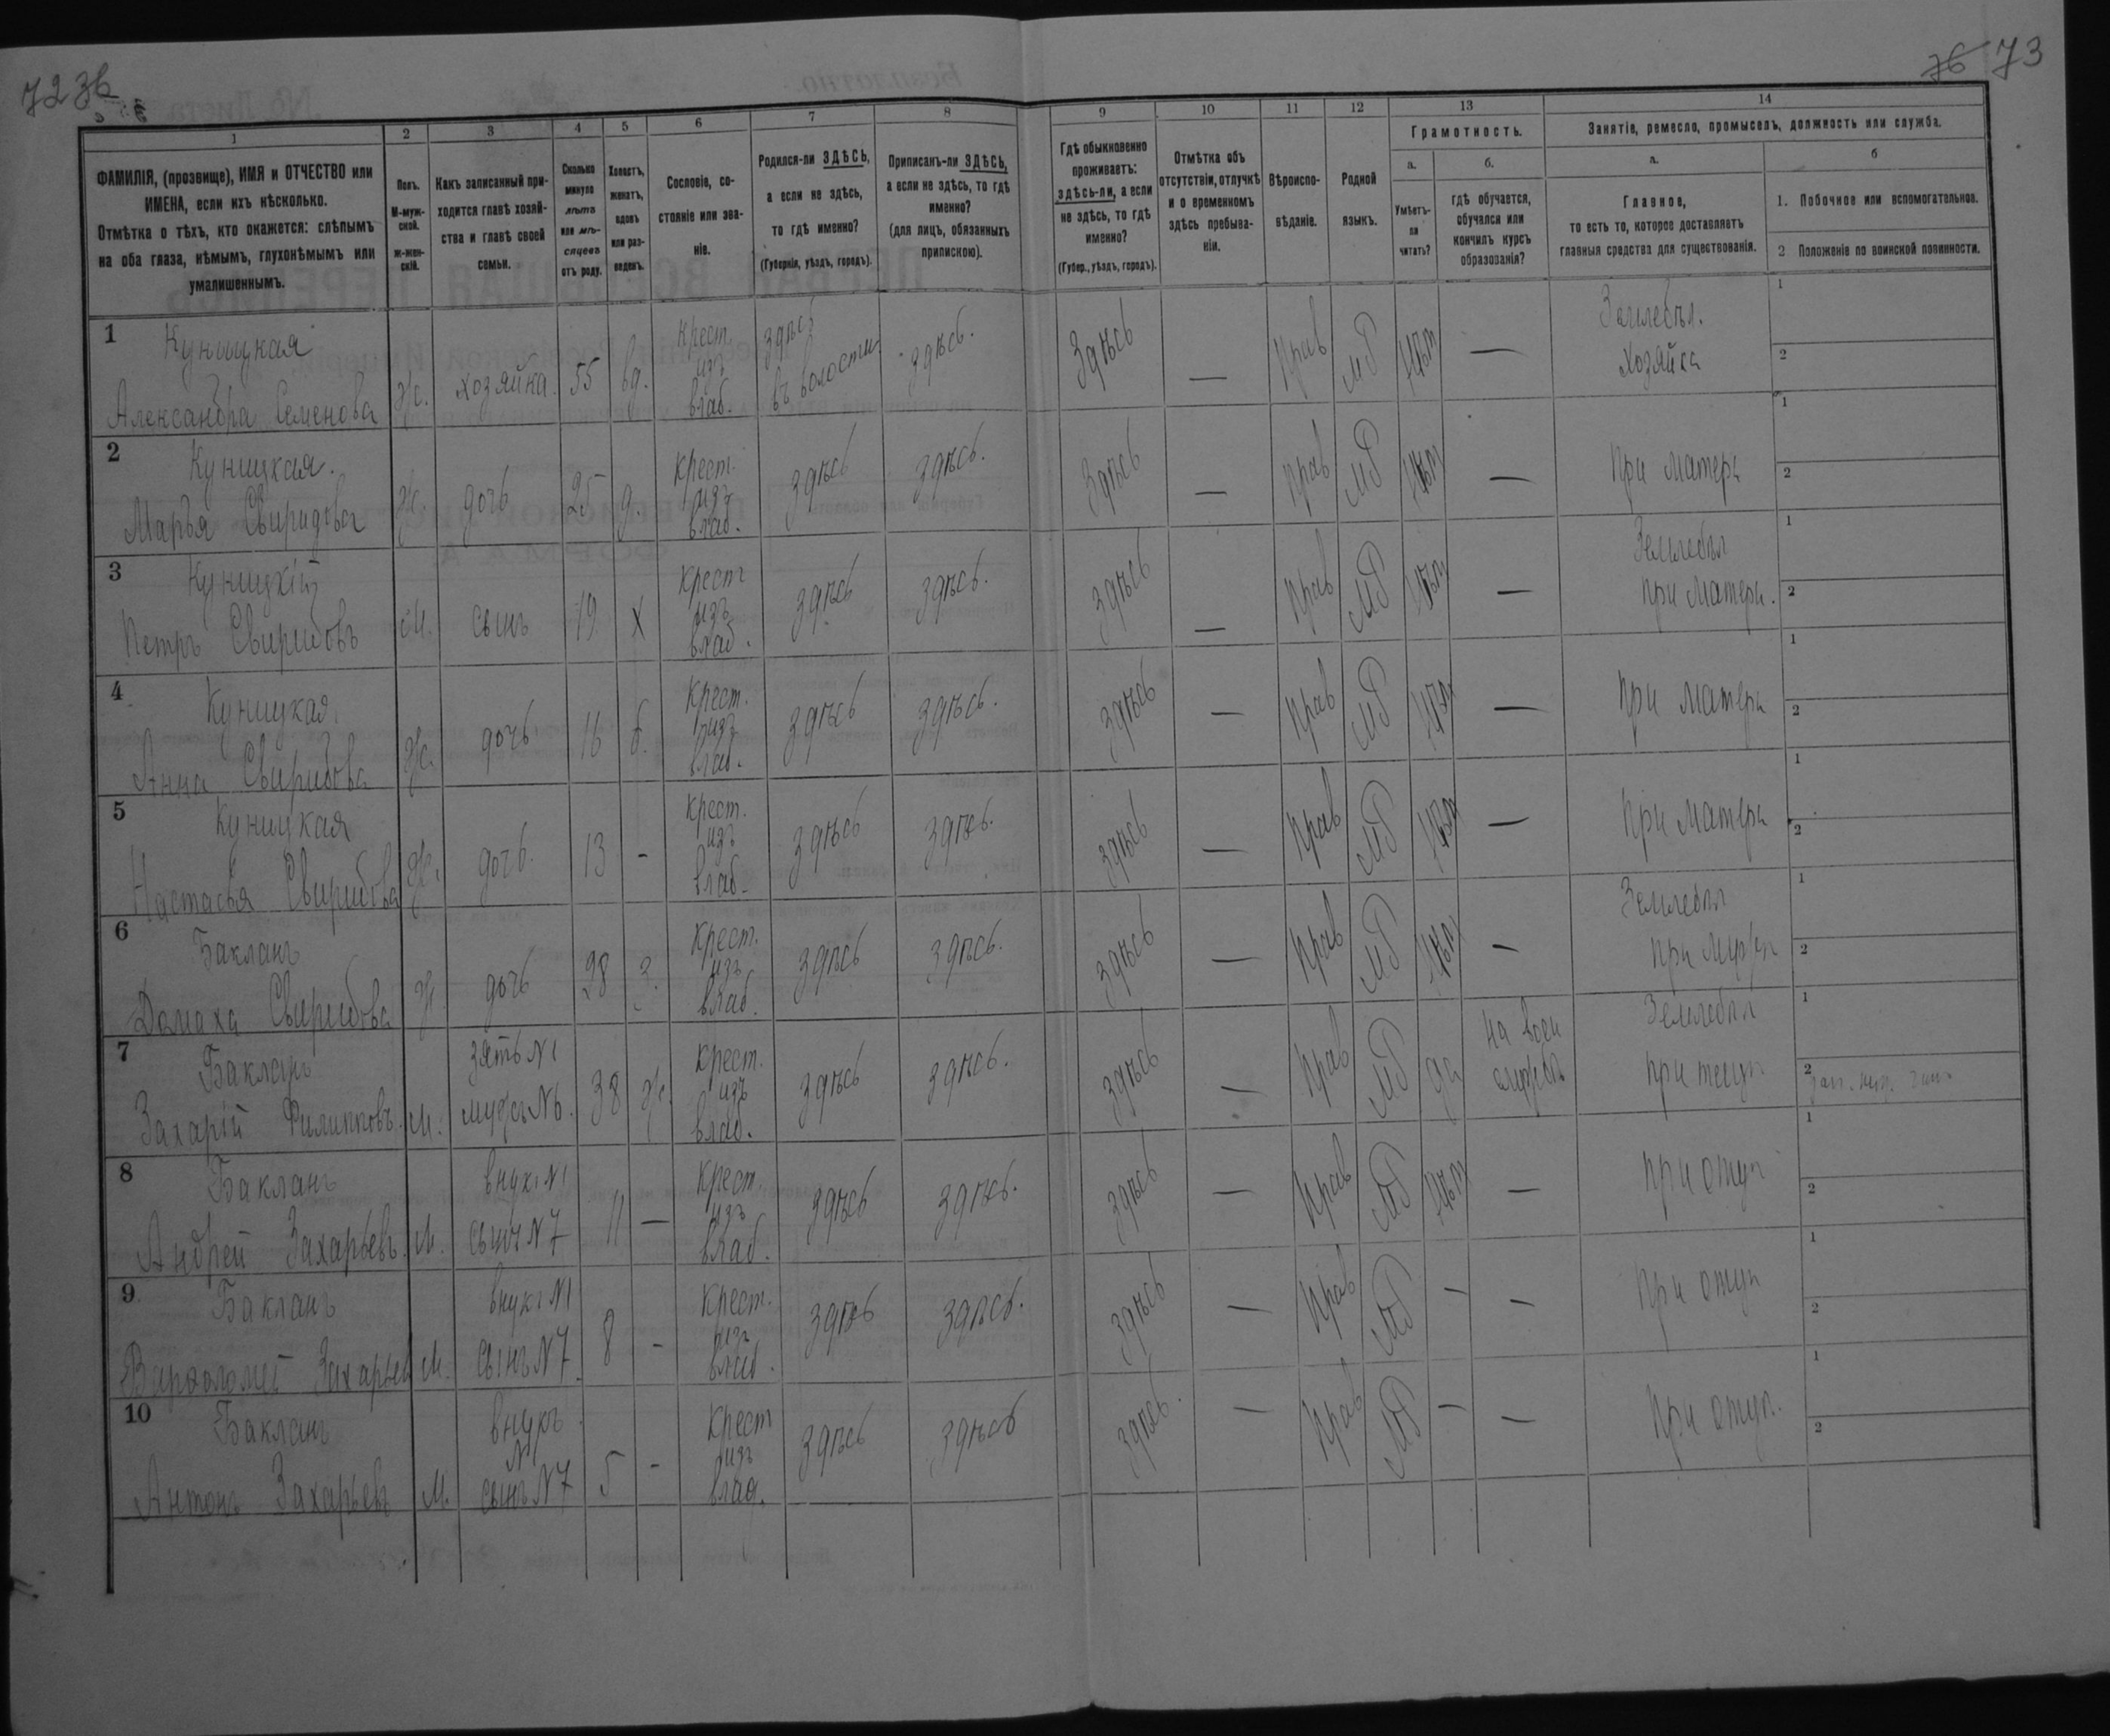 72 зв
76 73
1 2 3 4 5 6 7 8 9 10 11 12 13 14
ФАМИЛІЯ, (прозвище), ИМЯ и ОТЧЕСТВО или
ИМЕНА, если ихъ нѣсколько.
Отмѣтка о тѣхъ, кто окажется: слѣпымъ
на оба глаза, нѣмымъ, глухонѣмымъ или
умалишеннымъ.
Полъ.
М-муж-
ской.
ж-жен-
скій.
Какъ записанный при-
ходится главѣ хозяй-
ства и главѣ своей
семьи.
Сколько
минуло
лѣтъ
или мѣ-
сяцевъ
отъ роду.
Холостъ,
женатъ,
вдовъ
или раз-
веденъ.
Сословіе, со-
стояніе или зва-
ніе.
Родился-ли ЗДѢСЬ,
а если не здѣсь,
то гдѣ именно?
(Губернія, уѣздъ, городъ).
Приписанъ-ли ЗДѢСЬ,
а если не здѣсь, то гдѣ
именно?
(для лицъ, обязанныхъ
припискою).
Гдѣ обыкновенно
проживаетъ:
здѣсь-ли, а если
не здѣсь, то гдѣ
именно?
(Губер., уѣздъ, городъ).
Отмѣтка объ
отсутствіи, отлучкѣ
и о временномъ
здѣсь пребыва-
ніи.
Вѣроиспо-
вѣданіе.
Родной
языкъ.
Грамотность.
а.
Умѣетъ-
ли
читать?
б.
гдѣ обучается,
обучался или
кончилъ курсъ
образованія?
Занятіе, ремесло, промыселъ, должность или служба.
а.
Главное,
то есть то, которое доставляетъ
главныя средства для существованія.
б
1. Побочное или вспомогательное.
2 Положеніе по воинской повинности.
1 Куницкая
Александра Семенова ж. хозяйка. 55 вд. Крест. изъ влад. здѣсь въ волости здѣсь. Здѣсь — Прав МР Нѣт — Земледѣл. Хозяйка 1 2
2 Куницкая.
Марья Свиридова ж. дочь 25 д. Крест. изъ влад. здѣсь здѣсь. Здѣсь — Прав МР Нѣт — При матери 1 2
3 Куницкій
Петръ Свиридовъ М. сынъ 19 Х Крест изъ влад. здѣсь здѣсь. здѣсь — Прав МР Нѣт — Земледѣл при матери. 1 2
4 Куницкая
Анна Свиридова ж. дочь 16 д. Крест. изъ влад. здѣсь здѣсь. здѣсь — Прав МР Нѣт — При матери 1 2
5 Куницкая
Настасья Свиридова ж. дочь. 13 - Крест. изъ влад. здѣсь здѣсь. здѣсь — Прав МР Нѣт — При матери 1 2
6 Бакланъ
Домаха Свиридова ж дочь 28 з. Крест. изъ влад. здѣсь здѣсь. здѣсь — Прав МР Нѣт — Земледѣл при мужѣ 1 2
7 Бакланъ
Захарій Филипповъ. М. зять №1 мужъ №6. 38 ж. Крест. изъ влад. здѣсь здѣсь. здѣсь — Прав МР да на воен службѣ Земледѣл при тещѣ 1 2
8 Бакланъ
Андрей Захарьевъ. М. внукъ №1 сынъ №7 11 — Крест. изъ влад. здѣсь здѣсь. здѣсь — Прав МР Нѣт — При отцѣ 1 2
9 Бакланъ
Варѳоломей Захарьев М. внукъ №1 сынъ №7. 8 - Крест. изъ влад. здѣсь здѣсь. здѣсь — Прав МР — — При отцѣ 1 2
10 Бакланъ
Антонъ Захарьевъ М. внукъ №1 сынъ №7 5 - Крест изъ влад. здѣсь здѣсь здѣсь. — Прав МР — — При отцѣ. 1 2